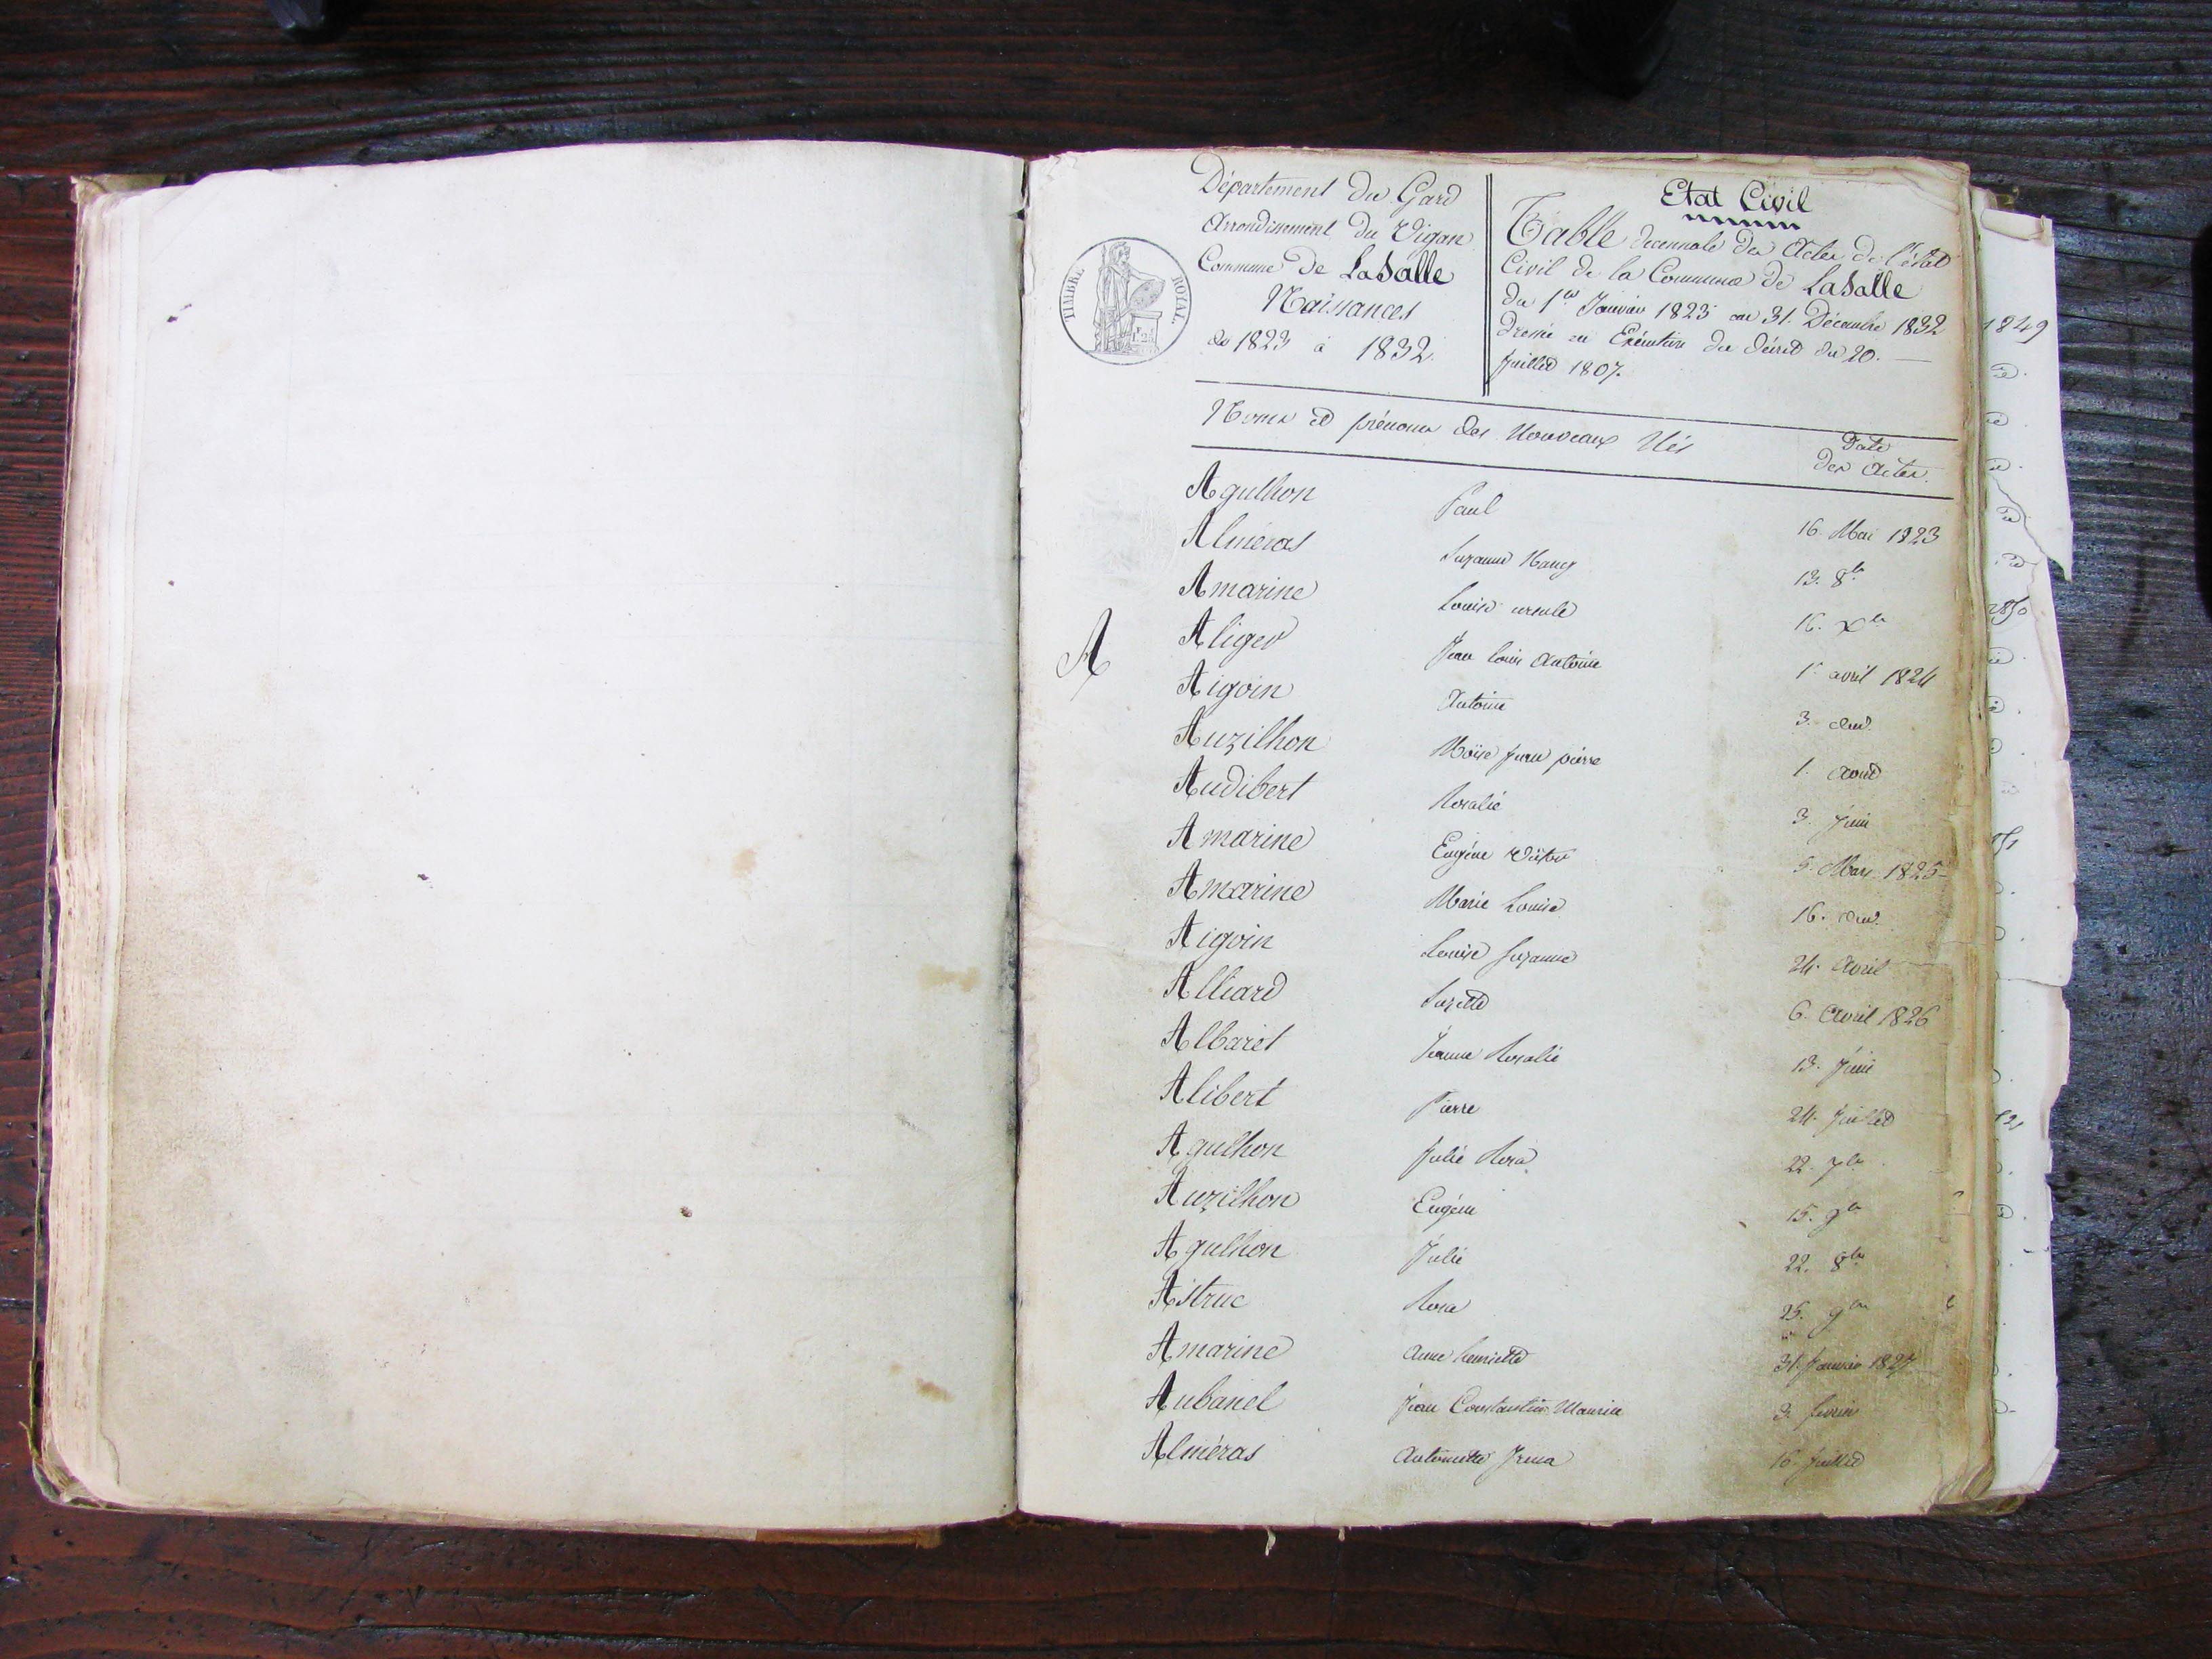 Département du Gard
Arrondissement du Vigan
Commune de LaSalle
Naissances
de 1823 à 1832.
TIMBRE ROYAL.
Etat Civil
Table decennale des Actes de l'état
Civil de la Commune de LaSalle
du 1er Janvier 1823 au 31. Décembre 1832
dressée en Exécution du décret du 20.
juillet 1807.
Noms et prénoms des Nouveaux Nés
Date
des Actes.
A
Agulhon Paul 16. Mai 1823
Alméras Suzanne Nancy 13. 8bre
Amarine Louise ursule 16. Xbre
Aliger Jean louis Antoine 1er avril 1824
Aigoin Antoine 3. dud.
Auzilhon Moïse jean pierre 1. Aout
Audibert Rosalie 3. juin
Amarine Eugène Victor 5. Mars 1825
Amarine Marie Louise 16. dud.
Aigoin Louise suzanne 24. Avril
Alliard Suzette 6. Avril 1826
Albaret Jeanne Rosalie 13. juin
Alibert Pierre 24. juillet
Agulhon Julie Rosa 22. 7bre
Auzilhon Eugène 15. 9bre
Agulhon Julie 22. 8bre
Astruc Rosa 25. 9bre
Amarine Anne henriette 31. Janvier 1827
Aubanel Jean Constantin Maurice 3. fevrier
Alméras Antoinette Irma 16. juillet
1849